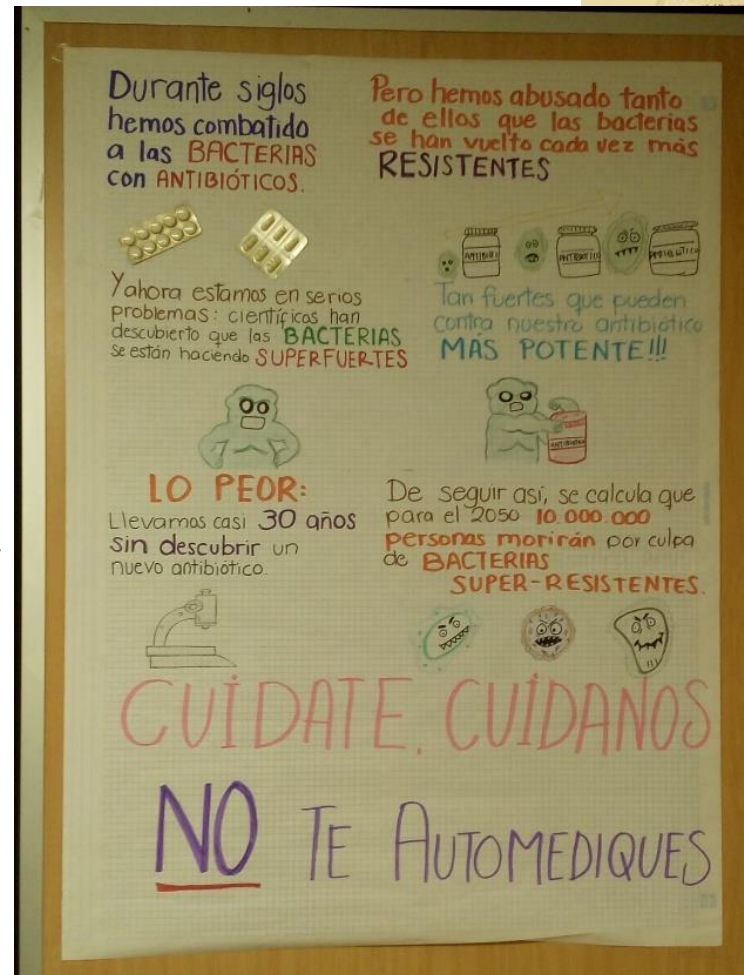 Durante siglos
hemos combatido
a las BACTERIAS
con ANTIBIÓTICOS.
Pero hemos abusado tanto
de ellos que las bacterias
se han vuelto cada vez más
RESISTENTES
Y ahora estamos en serios
problemas: científicos han
descubierto que las BACTERIAS
se están haciendo SUPERFUERTES
Tan fuertes que pueden
contra nuestro antibiótico
MÁS POTENTE!!!
LO PEOR:
Llevamos casi 30 años
sin descubrir un
nuevo antibiótico.
De seguir así, se calcula que
para el 2050 10.000.000
personas morirán por culpa
de BACTERIAS
SUPER-RESISTENTES.
CUÍDATE, CUÍDANOS
NO TE AUTOMEDIQUES